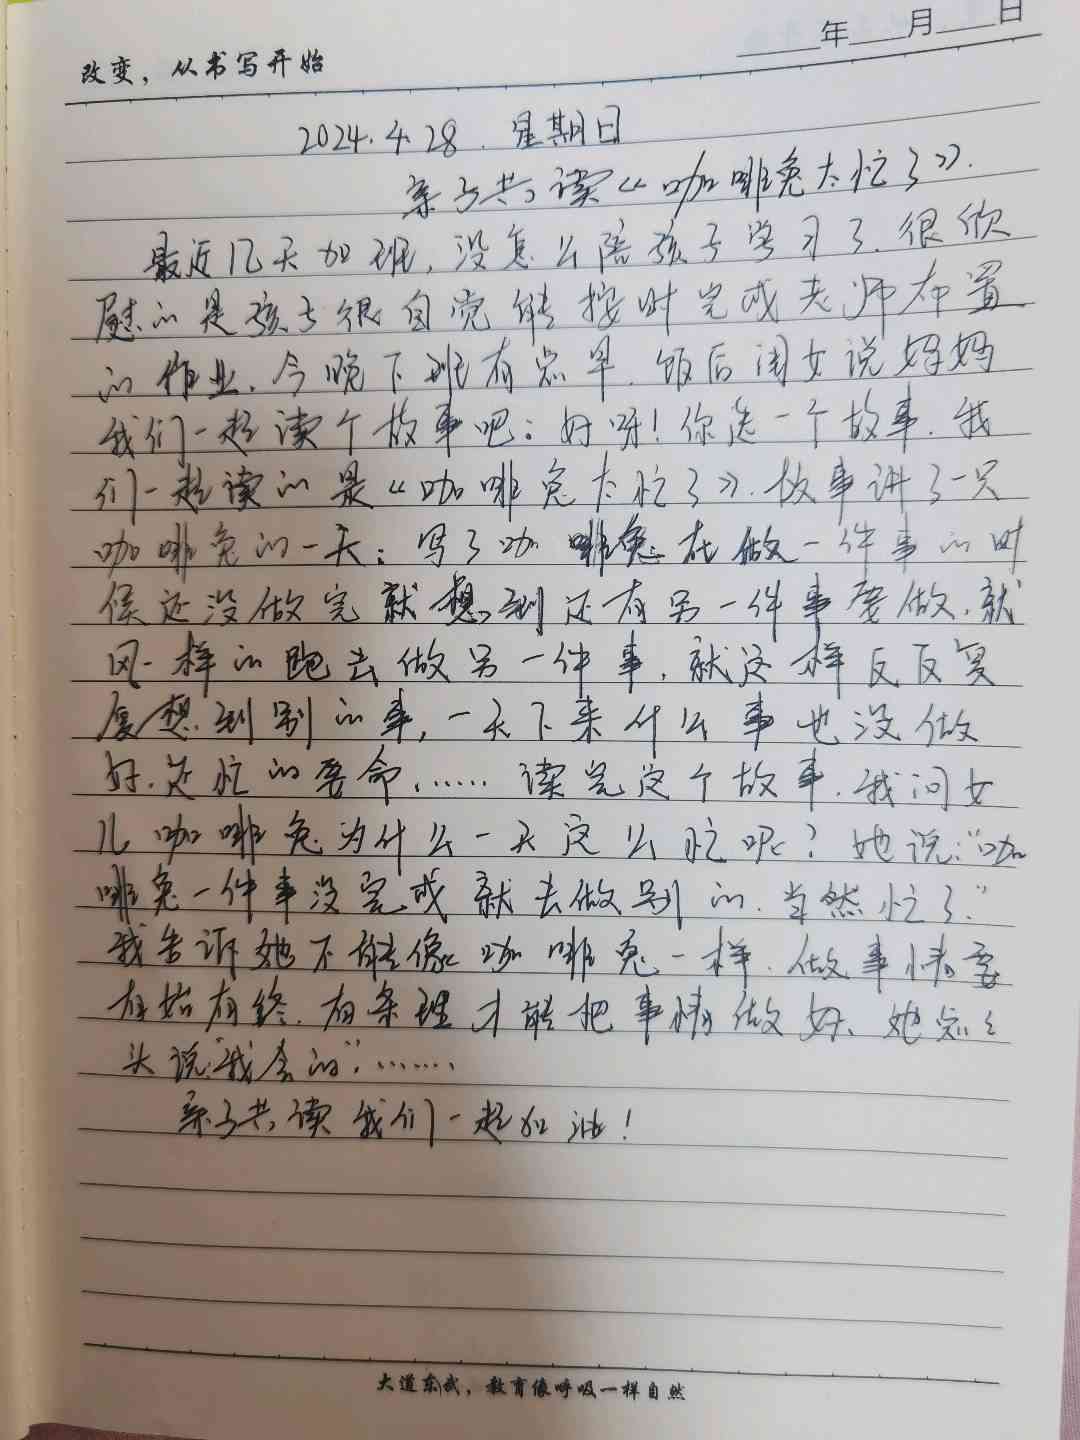 年 月 日
改变，从书写开始
2024.4.28. 星期日
亲子共读《咖啡兔太忙了》.
最近几天加班，没怎么陪孩子学习了.很欣
慰的是孩子很自觉能按时完成老师布置
的作业.今晚下班有点早.饭后闺女说妈妈
我们一起读个故事吧：好呀！你选一个故事.我
们一起读的是《咖啡兔太忙了》.故事讲了一只
咖啡兔的一天；写了咖啡兔在做一件事的时
侯还没做完就想到还有另一件事要做.就
风一样的跑去做另一件事.就这样反反复
复想到别的事，一天下来什么事也没做
好.还忙的要命.……读完这个故事.我问女
儿咖啡兔为什么一天这么忙呢？她说：“咖
啡兔一件事没完成就去做别的.当然忙了.”
我告诉她不能像咖啡兔一样.做事情要
有始有终.有条理才能把事情做好、她点点
头说“我会的”.……
亲子共读我们一起加油！
大道东武，教育像呼吸一样自然